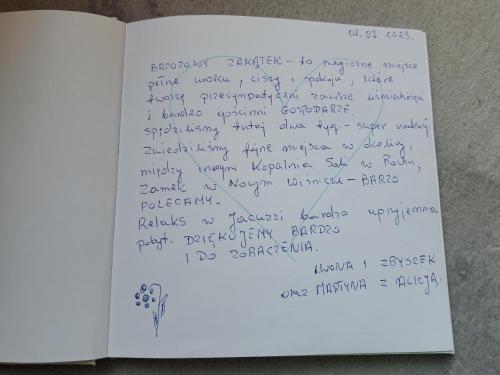 02.01.2023.
BRZOZOWY ZAKĄTEK - to magiczne miejsce
pełne uroku, ciszy i spokoju, które
tworzą przesympatyczni zawsze uśmiechnięci
i bardzo gościnni GOSPODARZE.
spędziliśmy tutaj dwa tyg. - super wakacji,
zwiedziliśmy fajne miejsca w okolicy,
między innymi Kopalnia Soli w Bochni,
Zamek w Nowym Wiśniczu - BARZO
POLECAMY.
Relaks w jacuzzi bardzo uprzyjemna
pobyt. DZIĘKUJEMY BARDZO
I DO ZOBACZENIA.
IWONA I ZBYSZEK
oraz MARTYNA Z ALICJĄ.